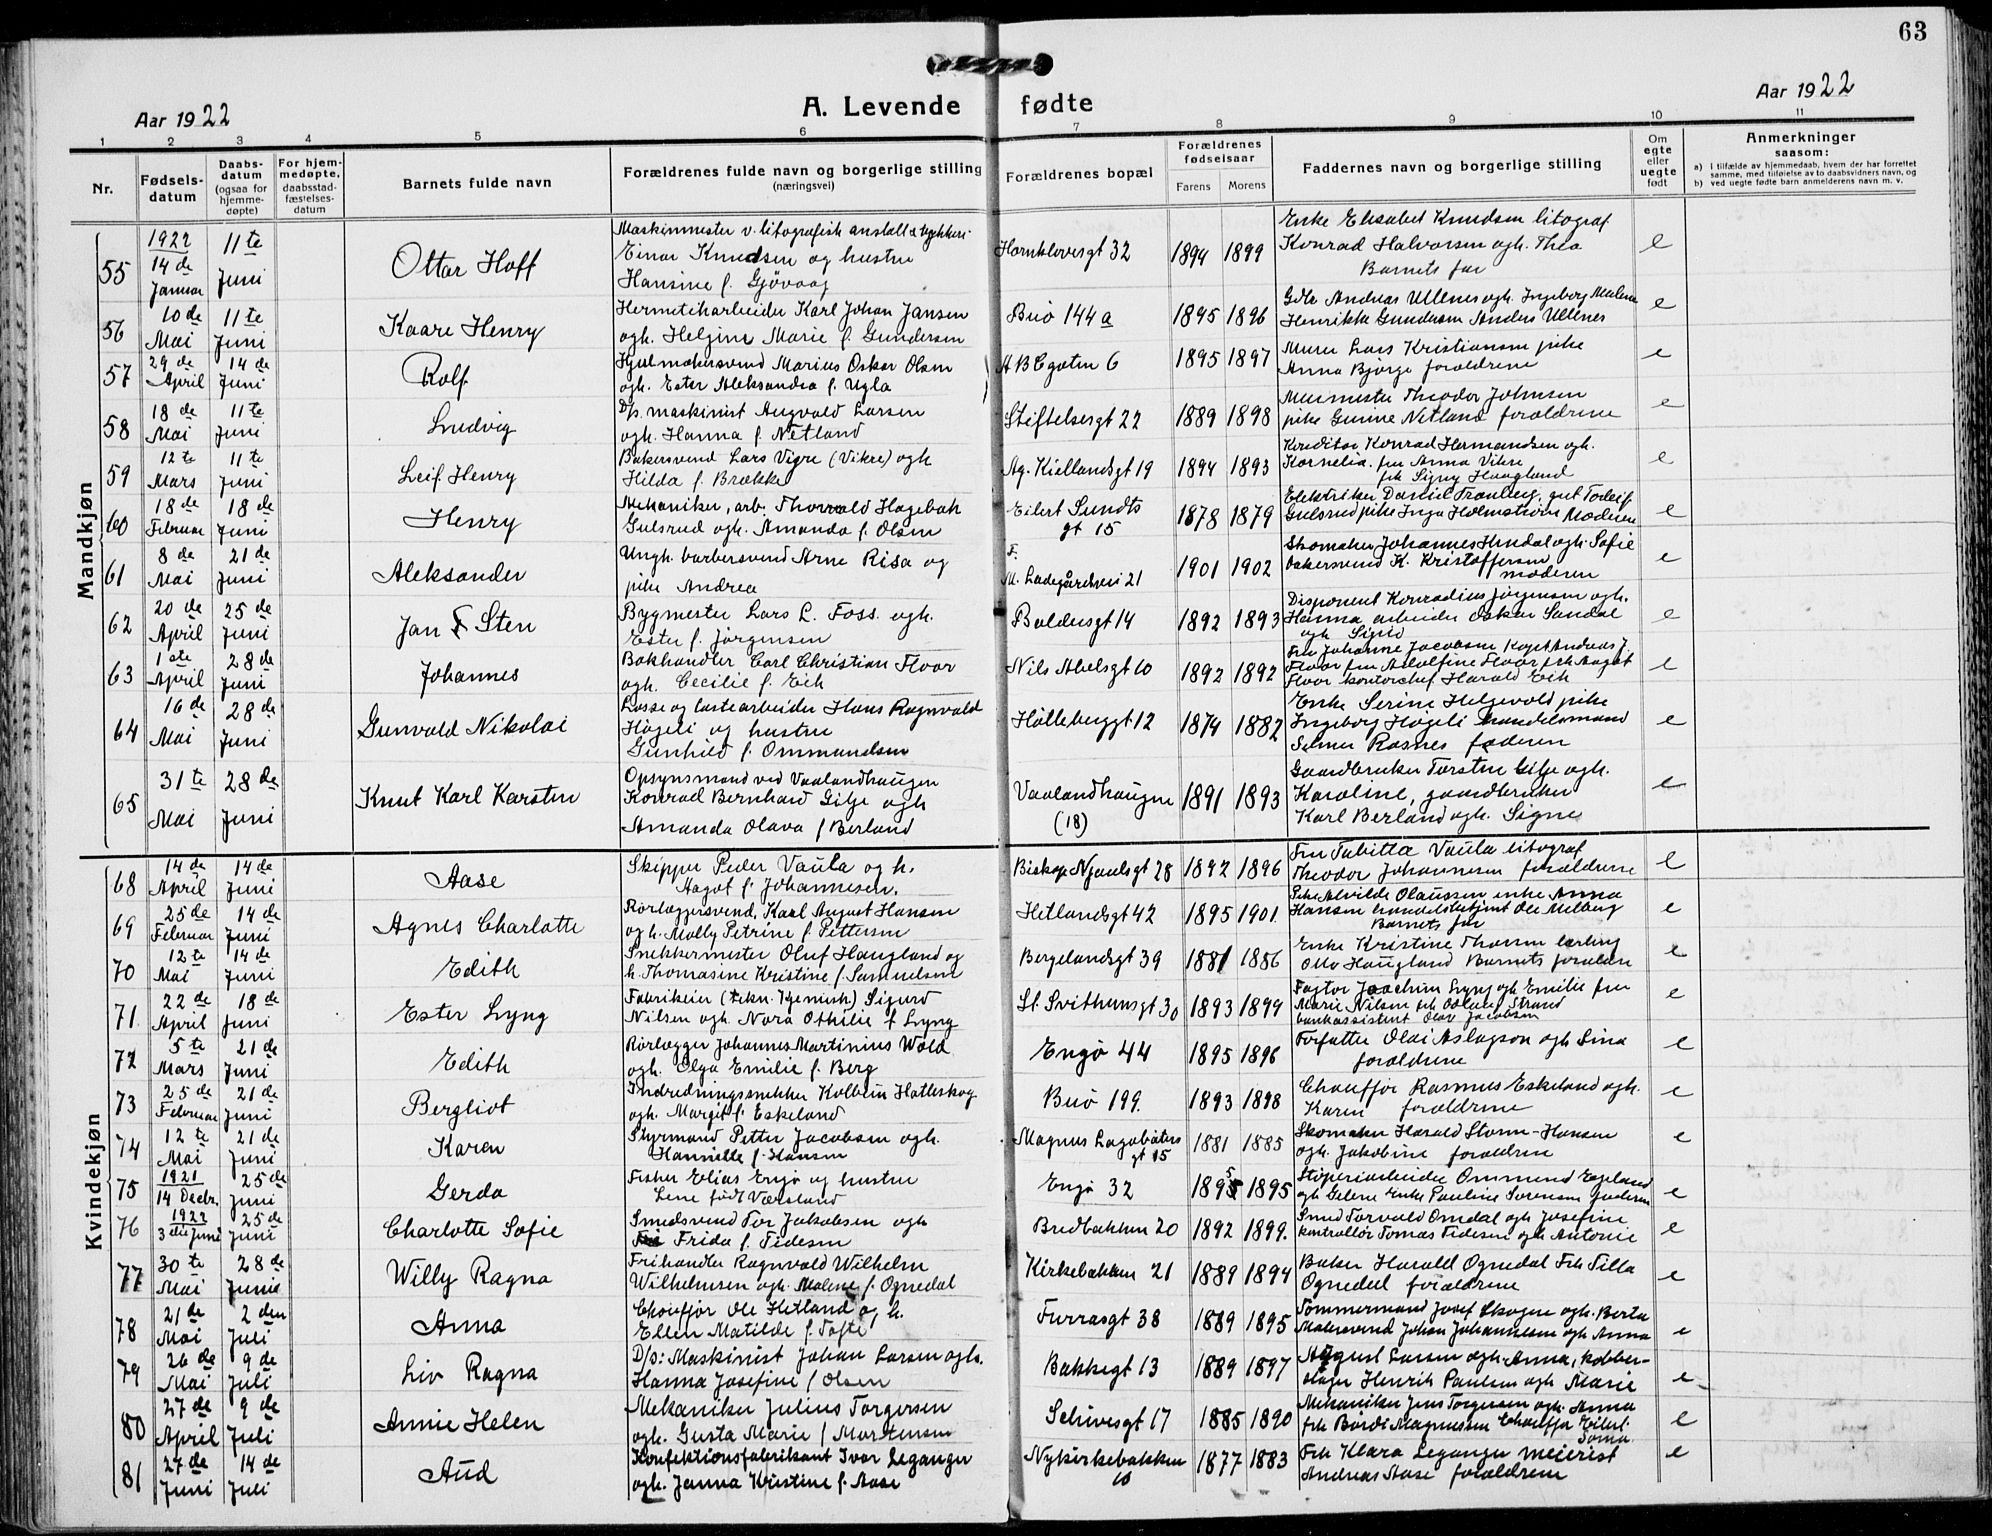 63
Aar 1922
A. Levende fødte
Aar 1922
1 2 3 4 5 6 7 8 9 10 11
Nr.
Fødsels-
datum
Daabs-
datum
(ogsaa for
hjemme-
døpte)
For hjem-
medøpte,
daabsstad-
fæstelses-
datum
Barnets fulde navn
Forældrenes fulde navn og borgerlige stilling
(næringsvei)
Forældrenes bopæl
Forældrenes
fødselsaar
Farens Morens
Faddernes navn og borgerlige stilling
Om
egte
eller
uegte
født
Anmerkninger
saasom:
a) i tilfælde av hjemmedaab, hvem der har forrettet
samme, med tilføielse av to daabsvidners navn, og
b) ved uegte fødte barn anmelderens navn m. v.
Mandkjøn
55 1922 14de Januar 11te Juni Ottar Hoff
Maskinmester v. litografisk anstalt & trykkeri
Einar Knudsen og hustru
Hansine f. Gjøvaag
Hornklovesgt 32 1894 1899
Enke Elisabet Knudsen litograf
Konrad Halvorsen ogh. Thea
Barnets far
e
56 10de Mai 11te Juni Kaare Henry
Hermetikarbeider Karl Johan Jansen
ogh. Helgine Marie f. Gundersen
Buø 144a 1895 1896
Gdbr Andreas Ullenes ogh. Ingeborg Malene
Henrikke Gundersen Anders Ullenes
e
57 29de April 14de Juni Rolf
Hjulmakersvend Marius Oskar Olsen
ogh. Ester Aleksandra f. Ugla
ABC gaten 6 1895 1897
Murer Lars Kristiansen pike
Anna Bjorge forældrene
e
58 18de Mai 11te Juni Ludvig
D/s. maskinist Augvald Larsen
ogh. Hanna f. Netland
Stiftelsesgt 22 1889 1898
Murmester Theodor Johnsen
pike Gurine Netland forældrene
e
59 12te Mars 11te Juni Leif Henry
Bakersvend Lars Vigre (Vikre) ogh
Hilda f. Brække
Ag. Kiellandsgt 19 1894 1893
Konditor Konrad Hermandsen ogh.
Kornelia. fru Anna Vikre
frk Signy Haugland
e
60 18de Februar 18de Juni Henry
Mekaniker, arb. Thorvald Hagebak
Gulsrud ogh. Amanda f. Olsen
Eilert Sundts
gt 15
1878 1879
Elektriker Daniel Tranberg, gut Torleif
Gulsrud pike Inga Holmstrøm Moderen
e
61 8de Mai 21de Juni Aleksander
Ungk. barbersvend Arne Risa og
pike Andrea
F.
M. Ladegårdsvei 21 1901 1902
Skomaker Johannes Hindal ogh. Sofie
bakersvend K. Kristoffersen
moderen
e
62 20de April 25de Juni Jan Sten
Bygmester Lars L. Foss ogh.
Ester f. Jørgensen
Baldersgt 14 1892 1893
Disponent Konradius Jørgensen ogh.
Hanna arbeider Oskar Sandal
ogh Sigrid
e
63 1ste April 28de Juni Johannes
Bokhandler Carl Christian Floor
ogh. Cecilie f. Eik
Nils Abelsgt 10 1892 1892
Fru Johanne Jacobsen Kapt Andreas J.
Floor fru Adolfine Floor frk Aagot
Floor kontorchef Harald Eik
e
64 16de Mai 28de Juni Gunvald Nikolai
Losse og lastearbeider Hans Ragnvald
Høgeli og hustru
Gunhild f. Ommundsen
Hølleberggt 12 1874 1882
Enke Serine Helgevold pike
Ingeborg Høgeli handelsmand
Selmer Rasnes faderen
e
65 31te Mai 28de Juni Knut Karl Karsten
Opsynsmand ved Vaalandhaugen
Konrad Bernhard Gilje ogh
Amanda Olava f Berland
Vaalandhaugen
(18)
1891 1893
Gaardbruker Torsten Gilje ogh.
Karoline, gaardbruker
Karl Berland ogh. Signe
e
Kvindekjøn
68 14de April 14de Juni Aase
Skipper Peder Vaula og h.
Aagot f. Johannesen.
Biskop Njaalsgt 28 1892 1896
Fru Tabitta Vaula litograf
Theodor Johannesen forældrene
e
69 25de Februar 14de Juni Agnes Charlotte
Rørlæggersvend, Karl August Hansen
og h. Molly Petrine f. Pettersen
Hetlandsgt 42 1895 1901
Pike Alvilde Olaussen enke Anna
Hansen handelsbetjent Ole Melberg
Barnets far
e
70 12te Mai 14de Juni Edith
Snekkermester Oluf Haugland og
h. Thomasine Kristine f. Samuelsen
Bergelandsgt 39 1881 1886
Enke Kristine Thorsen lærling
Otto Haugland Barnets forældre
e
71 22de April 18de Juni Ester Lyng
Fabrikeier (tekn. kjemisk) Sigurd
Nilsen ogh. Nora Othilie f Lyng
St. Svithunsgt 30 1893 1899
Fagtor Joachim Lyng ogh Emilie fru
Marie Nilsen frk Aslaug Strand
bankassistent Olav Jacobsen
e
72 5te Mars 21de Juni Edith
Rørlægger Johannes Martinius Wold
ogh. Olga Emilie f. Berg
Engø 44 1895 1896
Forfatter Olai Aslagson ogh Sina
forældrene
e
73 25de Februar 21de Juni Bergliot
Indredningssnekker Kolbein Hatleskog
ogh. Margit f. Eskeland
Buø 199. 1893 1898
Chauffør Rasmus Eskeland ogh.
Karen forældrene
e
74 12te Mai 21de Juni Karen
Styrmand Petter Jacobsen ogh.
Hannette f. Hansen
Magnus Lagabøters
gt 15
1881 1885
Skomaker Harald Storm-Hansen
ogh. Jakobine forældrene
e
75 1921 14 Decbr. 25de Juni Gerda
Fisker Elias Engø og hustru
Lene født Værsland
Engø 32 1895 1895
Støperiarbeider Ommund Egeland
ogh Gelene Enke Pauline Sørensen faderen
e
76 1922 3die Juni 25de Juni Charlotte Sofie
Smedsvend Tor Jakobsen ogh
Frida f. Tidesen
Bredbakken 20 1892 1899.
Smed Torvald Omdal ogh Josefine
kontrollør Tomas Tidesen ogh Antonie
e
77 30te Mai 28de Juni Willy Ragna
Frihandler Ragnvald Wilhelm
Wilhelmsen ogh. Malene f. Ognedal
Kirkebakken 21 1889 1894
Baker Harald Ognedal Frk Tilla
Ognedal forældrene
e
78 21de Mai 2den Juli Anna
Chauffør Ole Hetland og h.
Ellen Matilde f. Tofte
Furrasgt 38 1889 1895
Tømmermand Josef Skogen ogh. Berta
Malersvend Johan Johannesen ogh Anna
e
79 26de Mai 9de Juli Liv Ragna
D/s: Maskinist Johan Larsen ogh.
Hanna Josefine f Olsen
Bakkegt 13 1889 1897
August Larsen ogh. Anna, kobber-
slager Henrik Paulsen ogh Marie
e
80 27de April 9de Juli Annie Helen
Mekaniker Julius Torgersen
ogh. Gusta Marie f Mortensen
Schivesgt 17 1885 1890
Mekaniker Jens Torgersen ogh. Anna
frk Bordi Magnussen Chauffør Eilert
Sømo.
e
81 27de Juni 14de Juli Aud
Konfektionsfabrikant Ivar Leganger
ogh. Janna Kristine f. Aase
Nykirkebakken
10
1877 1883
Frk Klara Leganger meierist
Andreas Aase forældrene
e